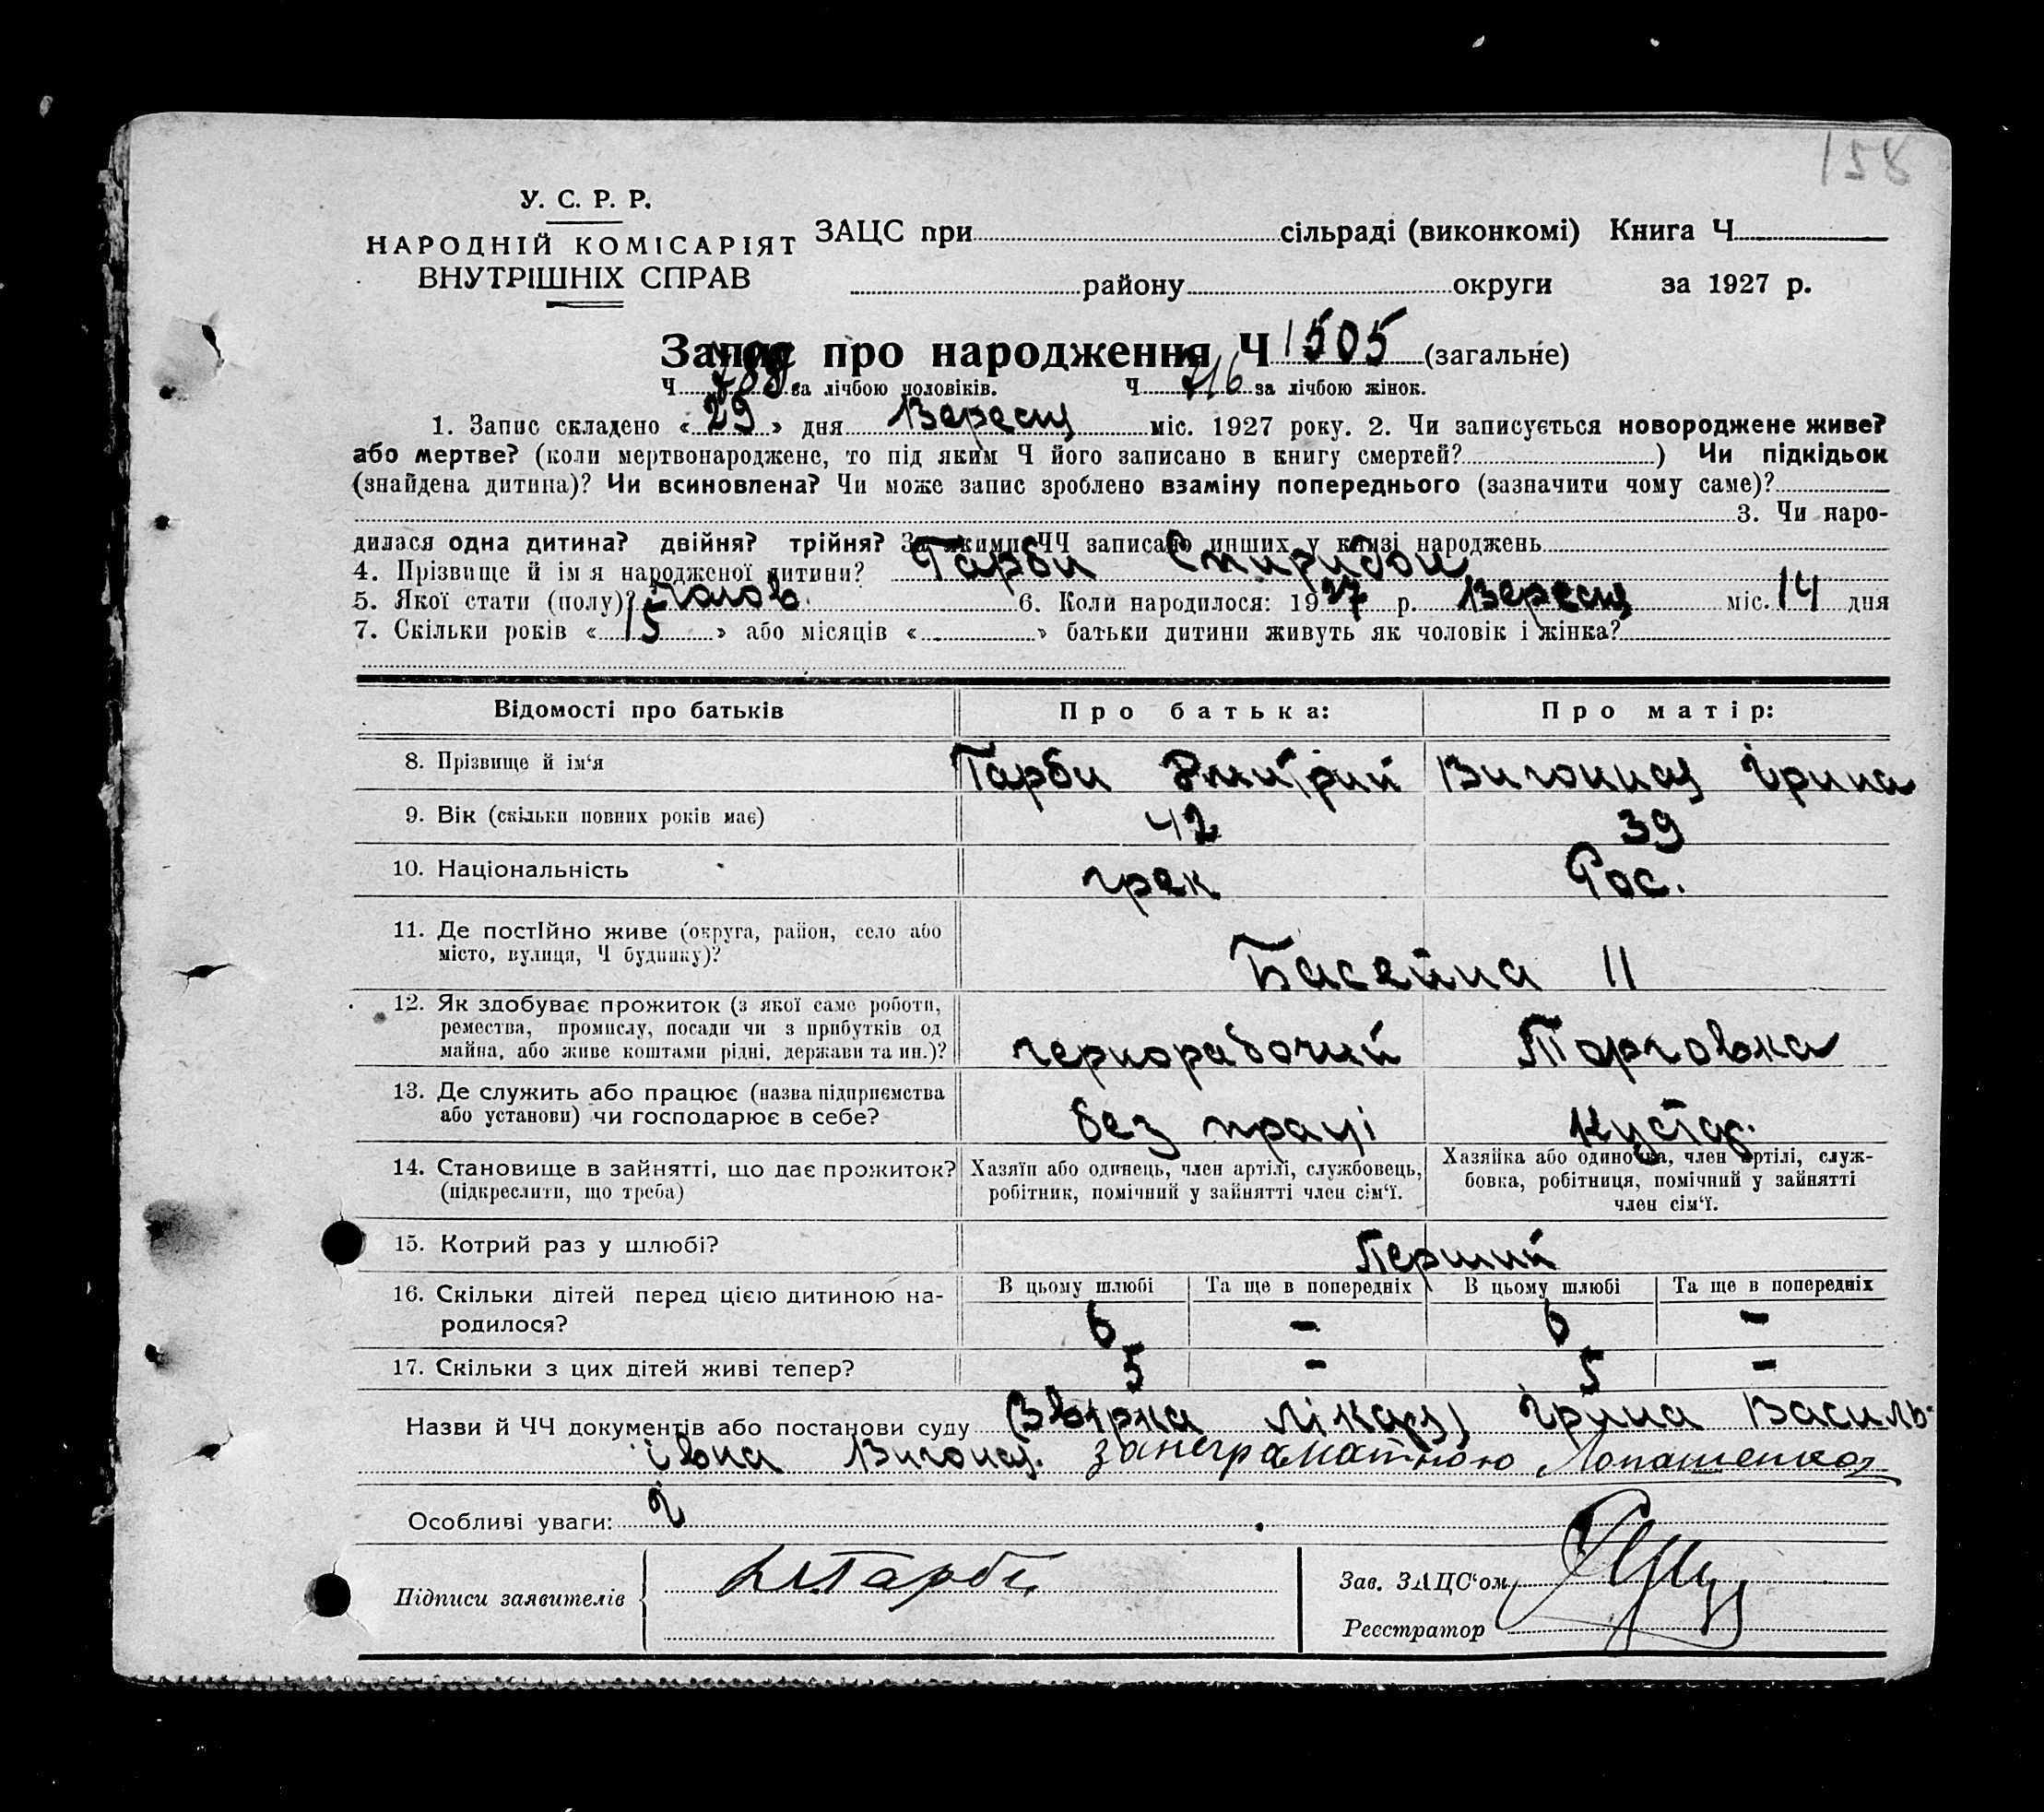 158
У. С. Р. Р.
НАРОДНІЙ КОМІСАРІЯТ
ВНУТРІШНІХ СПРАВ
ЗАЦС при сільраді (виконкомі) Книга Ч
району округи за 1927 р.
Запис про народження Ч 1505 (загальне)
Ч за лічбою чоловіків. Ч 716 за лічбою жінок.
1. Запис складено « 29 » дня Вересня міс. 1927 року. 2. Чи записується новороджене живе?
або мертве? (коли мертвонароджене, то під яким Ч його записано в книгу смертей? ) Чи підкідьок
(знайдена дитина)? Чи всиновлена? Чи може запис зроблено взаміну попереднього (зазначити чому саме)?
3. Чи наро-
дилася одна дитина? двійня? трійня? За якими ЧЧ записано инших у книзі народжень
4. Прізвище й ім я народженої дитини? Тарби Спиридон
5. Якої стати (полу)? чолов. 6. Коли народилося: 1927 р. Вересня міс. 14 дня
7. Скільки років « 15 » або місяців « » батьки дитини живуть як чоловік і жінка?
Відомості про батьків Про батька: Про матір:
8. Прізвище й ім‘я Тарби Дмитрий Ирина
9. Вік (скільки повних років має) 42 39
10. Національність грек Рос.
11. Де постійно живе (округа, район, село або
місто, вулиця, Ч будинку)? Басейна 11
12. Як здобуває прожиток (з якої саме роботи,
ремества, промислу, посади чи з прибутків од
майна, або живе коштами рідні, держави та ин.)? чернорабочий Торговка
13. Де служить або працює (назва підприємства
або установи) чи господарює в себе? без праці Кустар.
14. Становище в зайнятті, що дає прожиток?
(підкреслити, що треба)
Хазяїн або одинець, член артілі, службовець,
робітник, помічний у зайнятті член сім‘ї.
Хазяйка або одиночка, член артілі, служ-
бовка, робітниця, помічний у зайнятті
член сім‘ї.
15. Котрий раз у шлюбі? Перший
В цьому шлюбі Та ще в попередніх В цьому шлюбі Та ще в попередніх
16. Скільки дітей перед цією дитиною на-
родилося? 6 - 6 -
17. Скільки з цих дітей живі тепер? 5 - 5 -
Назви й ЧЧ документів або постанови суду Ирина Василь-
івна за неграматною
Особливі уваги: 2
Підписи заявителів Тарби
Зав. ЗАЦС‘ом
Реєстратор